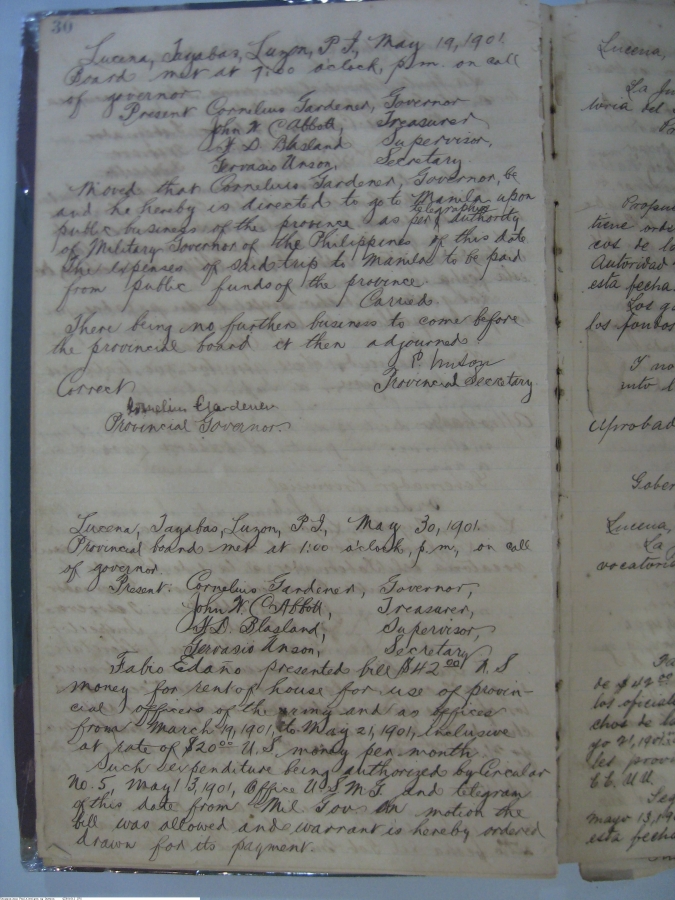 30
Lucena, Tayabas, Luzon, P.I., May 19, 1901.
Board met at 7:00 o'clock, p.m. on call
of governor
Present Cornelius Gardener, Governor
John W. C. Abbott, Treasurer,
D. Blasland Supervisor,
Gervasio Unson, Secretary
Moved that Cornelius Gardener, Governor, be
and he hereby is directed to go to Manila upon
public business of the province as per telegraphic authority
of Military Governor of the Philippines of this date
The expenses of said trip to Manila to be paid
from public funds of the province.
Carried.
There being no further business to come before
the provincial board it then adjourned
Unson
Correct Provincial Secretary.
Cornelius Gardener
Provincial Governor.
Lucena, Tayabas, Luzon, P.I., May 30, 1901.
Provincial board met at 1:00 o'clock, p.m., on call
of governor
Present: Cornelius Gardener, Governor,
John W. C. Abbott, Treasurer,
D. Blasland, Supervisor,
Gervasio Unson, Secretary
Fabio Edaño presented bill $42.00 U.S
money for rent of house for use of provin-
cial officers of the army and as offices
from March 19, 1901, to May 21, 1901, inclusive
at rate of $20.00 U.S. money per month.
Such expenditure being authorized by Circular
No. 5, May 13, 1901, Office U S M G and telegram
of this date from Mil Gov. On motion the
bill was allowed and warrant is hereby ordered
drawn for its payment.
Lucena,
La
toria del
tiene
cos de
Autoridad
esta fecha.
Los
los fondos
Y no
Aprobad
Gober
Lucena,
La
vocatoria
de $42.00
los oficial
chos de la
EE. UU
mayo 13, 19
esta fecha